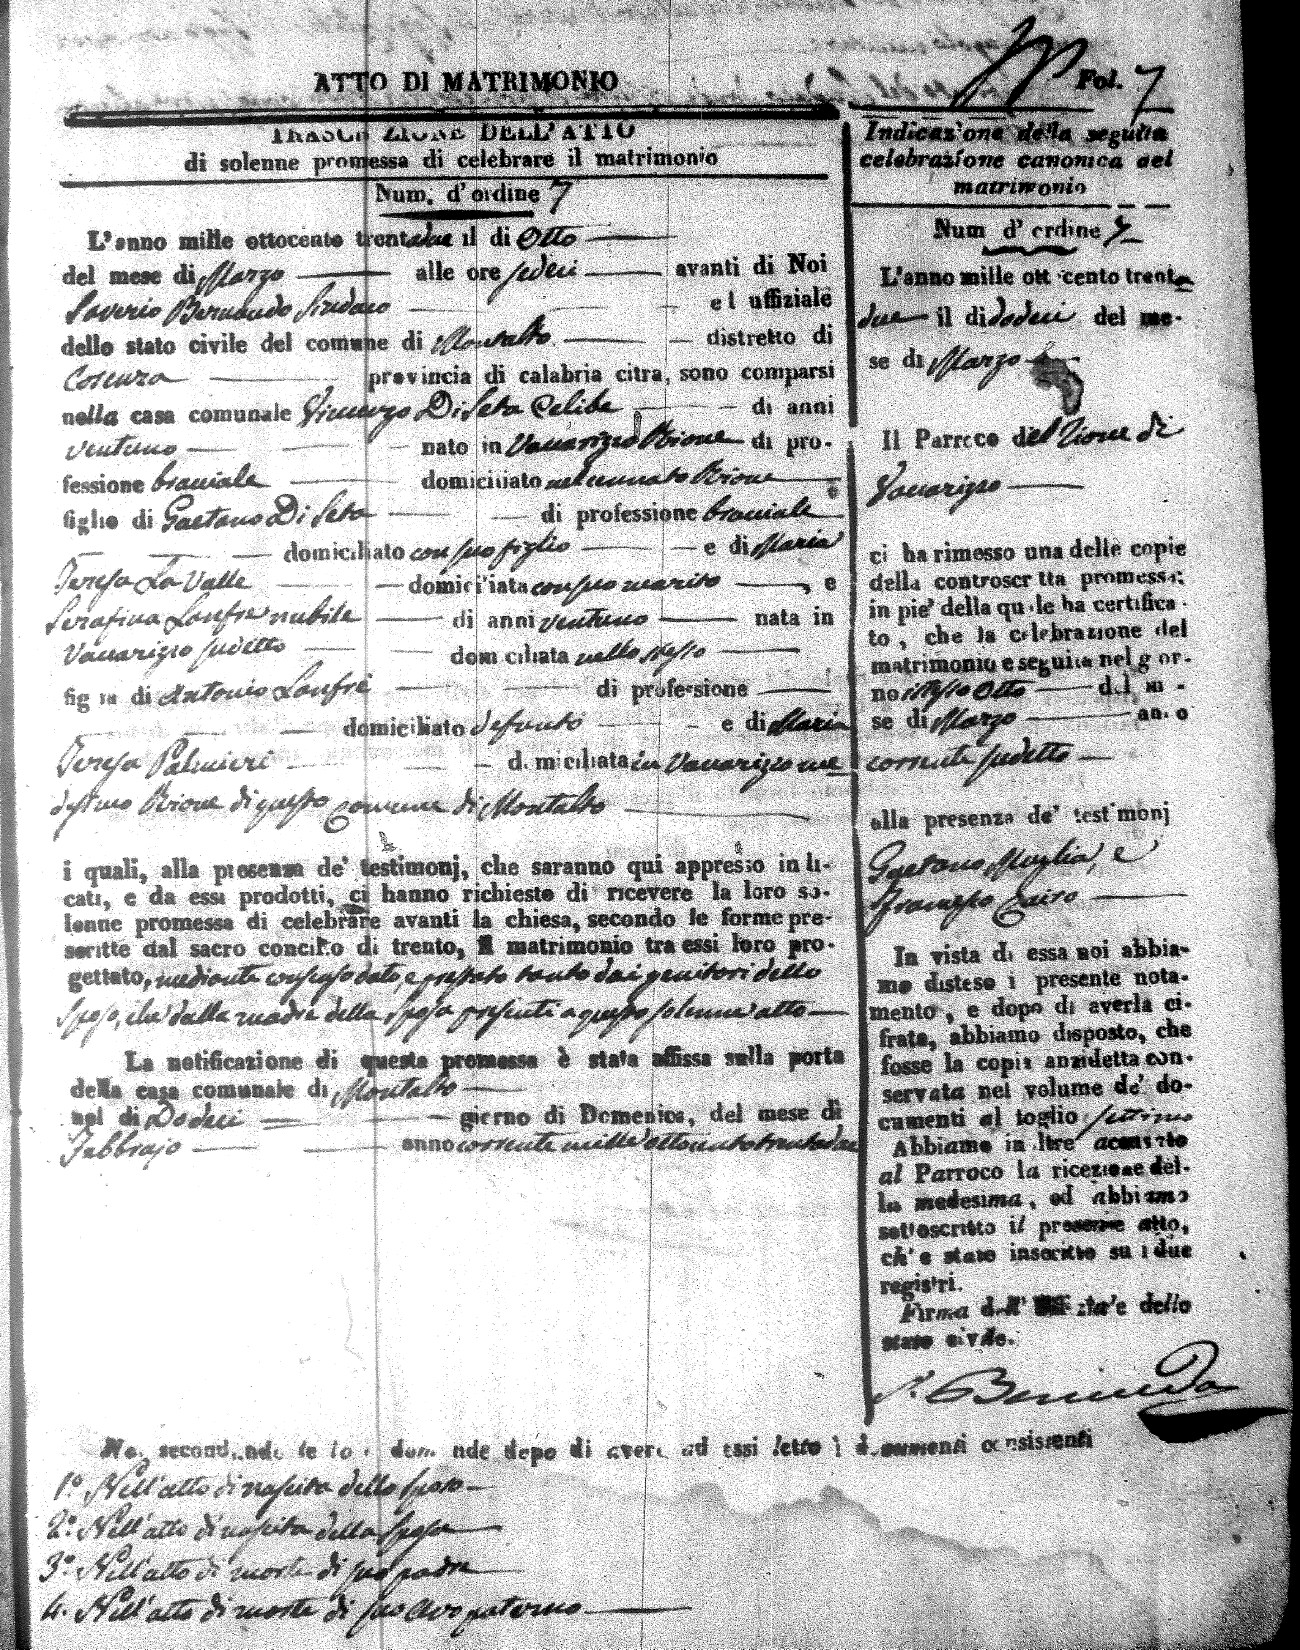 ATTO DI MATRIMONIO
Fol. 7
TRASCRIZIONE DELL'ATTO
di solenne promessa di celebrare il matrimonio
Num. d'ordine 7
L'anno mille ottocento trentadue il di Otto
del mese di Marzo alle ore sedeci avanti di Noi
Saverio Bernaudo Sindaco ed uffiziale
dello stato civile del comune di Montalto distretto di
Cosenza provincia di calabria citra, sono comparsi
nella casa comunale Vincenzo Di Seta Celibe di anni
ventuno nato in Vaccarizzo Rione di pro-
fessione bracciale domiciliato nel cennato Rione
figlio di Gaetano Di Seta di professione bracciale
domiciliato con suo figlio e di Maria
Teresa La Valle domiciliata con suo marito, e
Serafina Lanfrè nubile di anni ventuno nata in
Vaccarizzo sudetto domiciliata nello stesso
figlia di Antonio Lanfrè di professione
domiciliato defunto e di Maria
Teresa Palmieri domiciliata in Vaccarizzo me
desimo Rione di questo Comune di Montalto
i quali, alla presenza de' testimonj, che saranno qui appresso indi-
cati, e da essi prodotti, ci hanno richiesto di ricevere la loro so-
lenne promessa di celebrare avanti la chiesa, secondo le forme pre-
scritte dal sacro concilio di trento, il matrimonio tra essi loro pro-
gettato, mediante consenso dato, e prestato tanto dai genitori dello
sposo, che dalla madre della sposa presenti a questo solenne atto
La notificazione di questa promessa è stata affissa sulla porta
della casa comunale di Montalto
nel di Dodeci giorno di Domenica, del mese di
Febbrajo anno corrente mille ottocento trentadue
Noi secondando le loro domande dopo di avere ad essi letto i documenti consistenti
1.º Nell'atto di nascita dello sposo
2.º Nell'atto di nascita della sposa
3.º Nell'atto di morte di suo padre
4. Nell'atto di morte di suo avo paterno
Indicazione della seguita
celebrazione canonica del
matrimonio
Num d'ordine 7
L'anno mille ottocento trenta
due il di dodeci del me-
se di Marzo
Il Parroco del Rione di
Vaccarizzo
ci ha rimesso una delle copie
della controscritta promessa;
in piè della quale ha certifica-
to, che la celebrazione del
matrimonio e seguita nel gior-
no istesso Otto del me-
se di Marzo anno
corrente sudetto
alla presenza de' testimonj
Gaetano Muglia, e
Francesco Cairo
In vista di essa noi abbia-
mo disteso il presente nota-
mento, e dopo di averla ci-
frata, abbiamo disposto, che
fosse la copia anzidetta con-
servata nel volume de' do-
cumenti al foglio settimo
Abbiamo inoltre accusato
al Parroco la ricezione del-
la medesima, ed abbiamo
sottoscritto il presente atto,
ch'e stato inscritto su i due
registri.
Firma dell' Uffiziale dello
stato civile.
S. Bernaudo